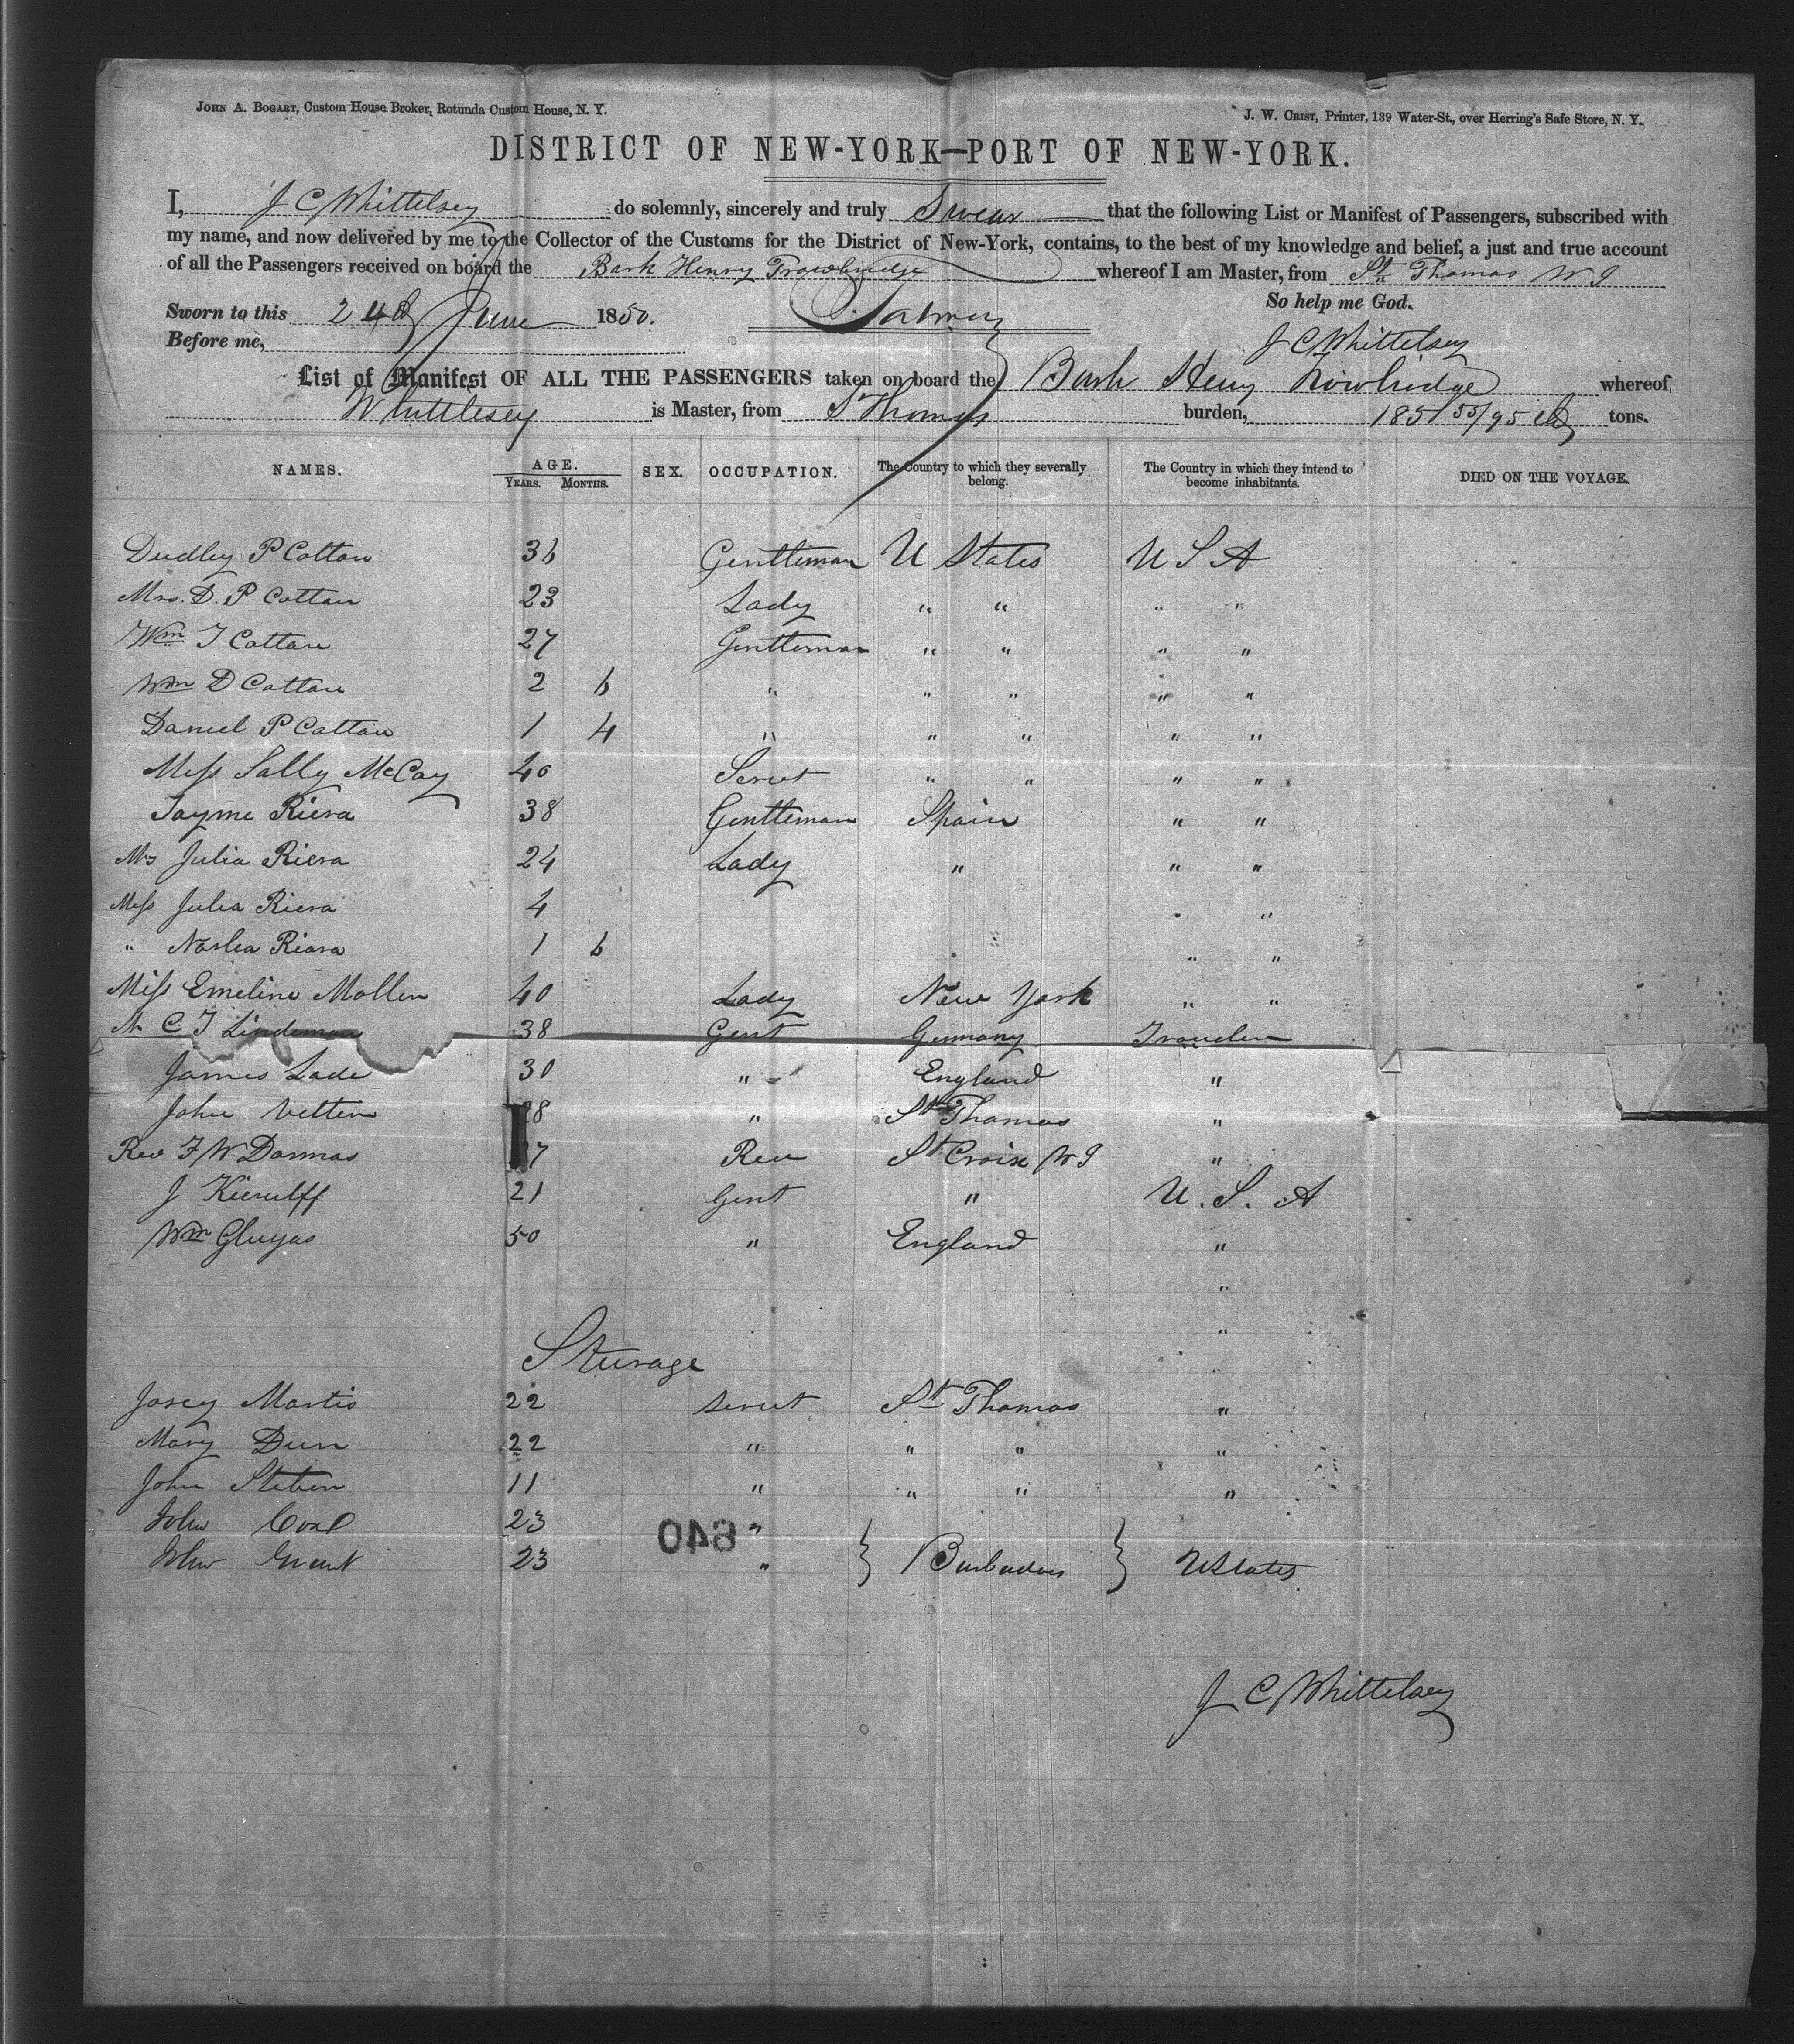 JOHN A. BOGART, Custom House Broker, Rotunda Custom House, N. Y.
J. W. CRIST, Printer, 139 Water-St., over Herring's Safe Store, N. Y.
DISTRICT OF NEW-YORK—PORT OF NEW-YORK.
I, J C Whittelsey do solemnly, sincerely and truly Swear that the following List or Manifest of Passengers, subscribed with
my name, and now delivered by me to the Collector of the Customs for the District of New-York, contains, to the best of my knowledge and belief, a just and true account
of all the Passengers received on board the Bark Henry Trowbridge whereof I am Master, from St Thomas W I
Sworn to this 24th June 1850. So help me God.
Before me, J C Whittelsey
List of Manifest OF ALL THE PASSENGERS taken on board the Bark Henry Trowbridge whereof
Whittlesey is Master, from St Thomas burden, tons.
NAMES. AGE. YEARS. MONTHS. SEX. OCCUPATION. The Country to which they severally belong. The Country in which they intend to become inhabitants. DIED ON THE VOYAGE.
Dudley P Cotton 36 Gentleman U States U S A
Mrs. D. P Cotton 23 Lady " " " "
Wm J Cotton 27 Gentleman " " " "
Wm D Cotton 2 6 " " " " "
Daniel P Cotton 1 4 " " " " "
Miss Sally McCoy 40 Servt " " " "
Jayme Riera 38 Gentleman Spain " "
Mrs Julia Riera 24 Lady " " "
Miss Julia Riera 4 " "
" Riera 1 6 " "
Miss Emeline Mollen 40 Lady New York " "
Mr C J Lindeman 38 Gent Germany Traveler
James Lade 30 " England "
John Vetten 28 " St Thomas "
Rev F W Dannas 7 Rev St Croix W I "
J Kierulff 21 Gent " U. S. A
Wm Gluyas 50 " England "
"
"
"
Steerage
Martis 22 servt St Thomas "
Mary Dun 22 " " " "
John Steben 11 " " " "
John 23 "
John Grant 23 " } Barbadoes } U States
640
J C Whittelsey